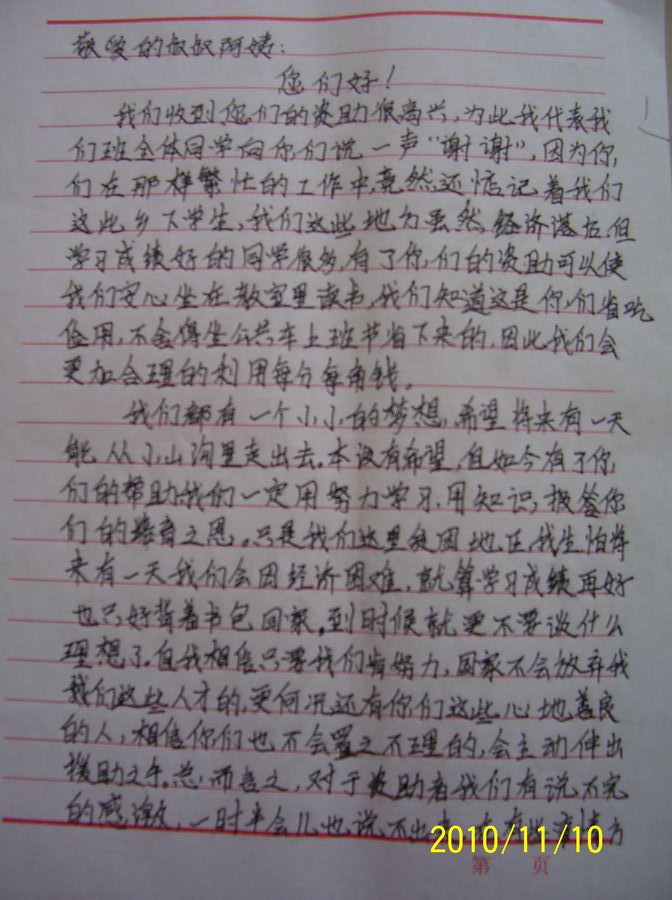 敬爱的叔叔阿姨：
您们好！
我们收到您们的资助很高兴，为此我代表我
们班全体同学向你们说一声“谢谢”，因为你
们在那样繁忙的工作中，竟然还惦记着我们
这此乡下学生，我们这些地方虽然经济落后，但
学习成绩好的同学很多，有了你们的资助可以使
我们安心坐在教室里读书，我们知道这是你们省吃
俭用，不舍得坐公共车上班节省下来的，因此我们会
更加合理的利用每分每角钱。
我们都有一个小小的梦想，希望将来有一天
能从小山沟里走出去。本没有希望，但如今有了你
们的帮助我们一定用努力学习，用知识报答你
们的之恩。只是我们这里贫困地区，我生怕将
来有一天我们会因经济困难，就算学习成绩再好
也只好背着书包回家。到时候就更不要谈什么
理想了。但我相信只要我们肯努力，国家不会放弃我
我们这些人才的，更何况还有你们这些心地善良
的人，相信你们也不会置之不理的，会主动伸出
援助之手。总而言之，对于资助者我们有说不完
的感激，一时半会儿也说不出
2010/11/10
第 页